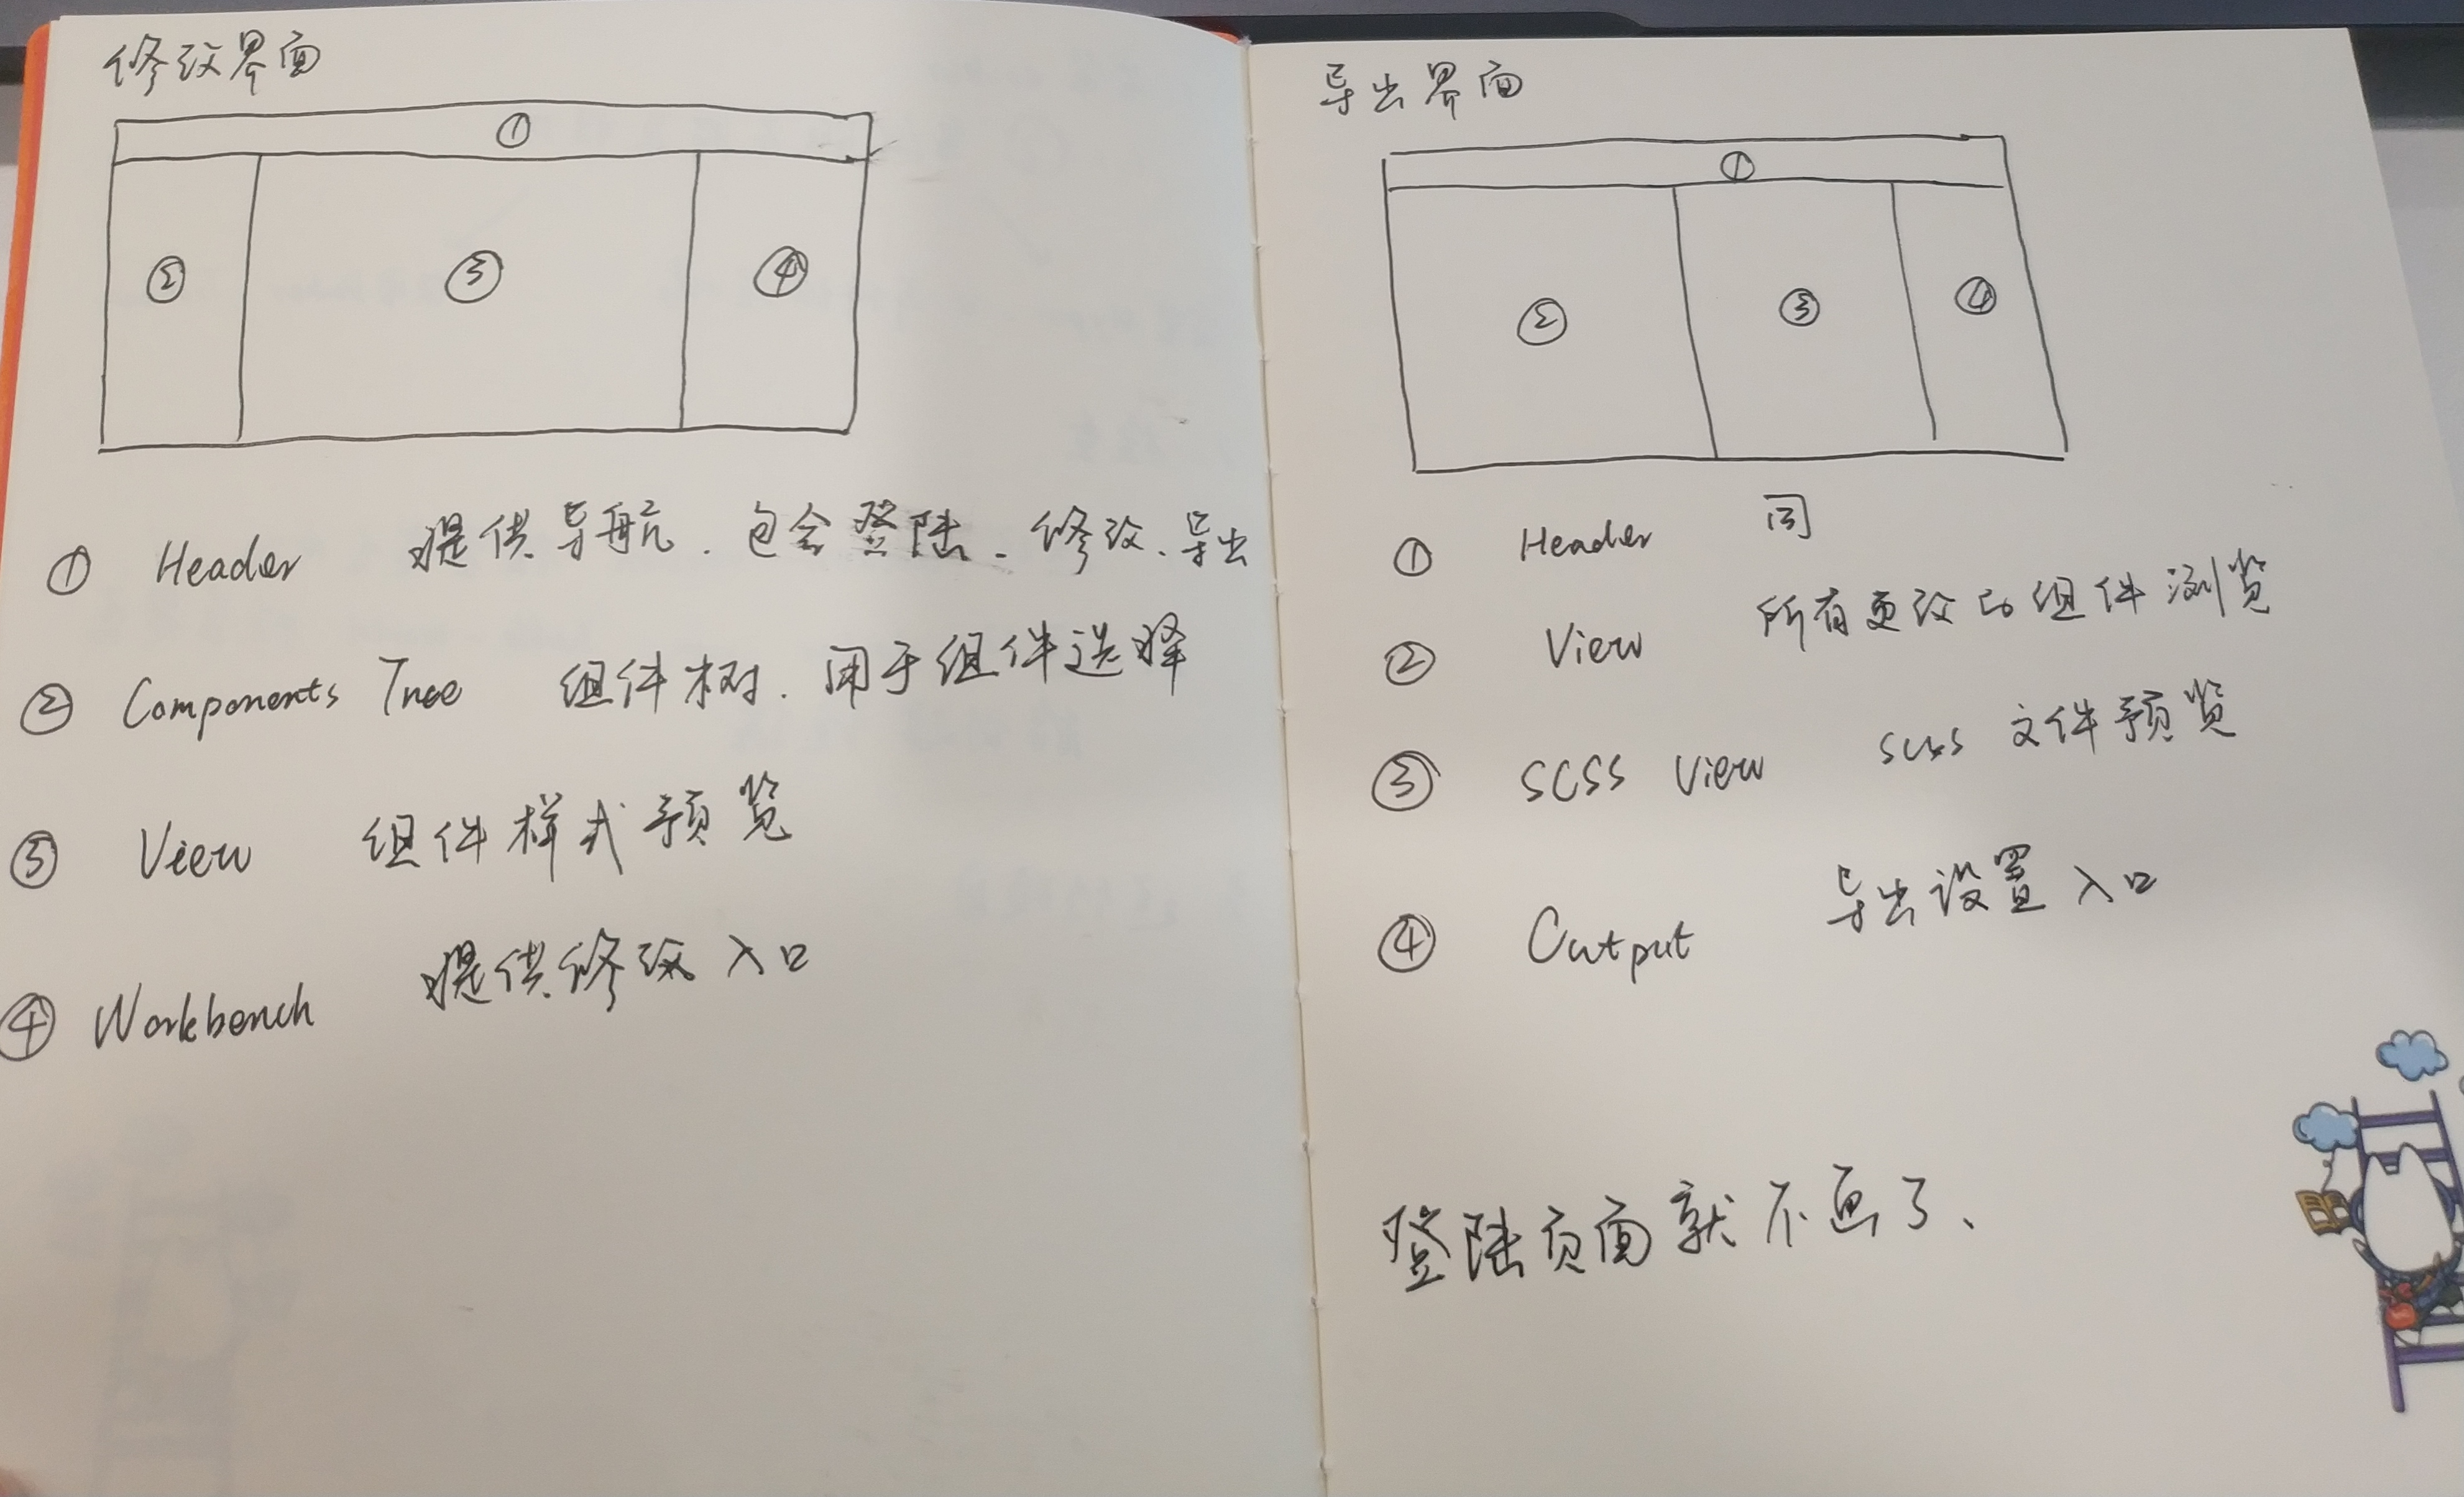 修改界面
①
② ③ ④
① Header 提供导航、包含登陆、修改、导出
② Components Tree 组件树、用于组件选择
③ View 组件样式预览
④ Workbench 提供修改入口
导出界面
①
② ③ ④
① Header 同
② View 所有更改的组件浏览
③ SCSS View scss 文件预览
④ Output 导出设置入口
登陆页面就不画了、